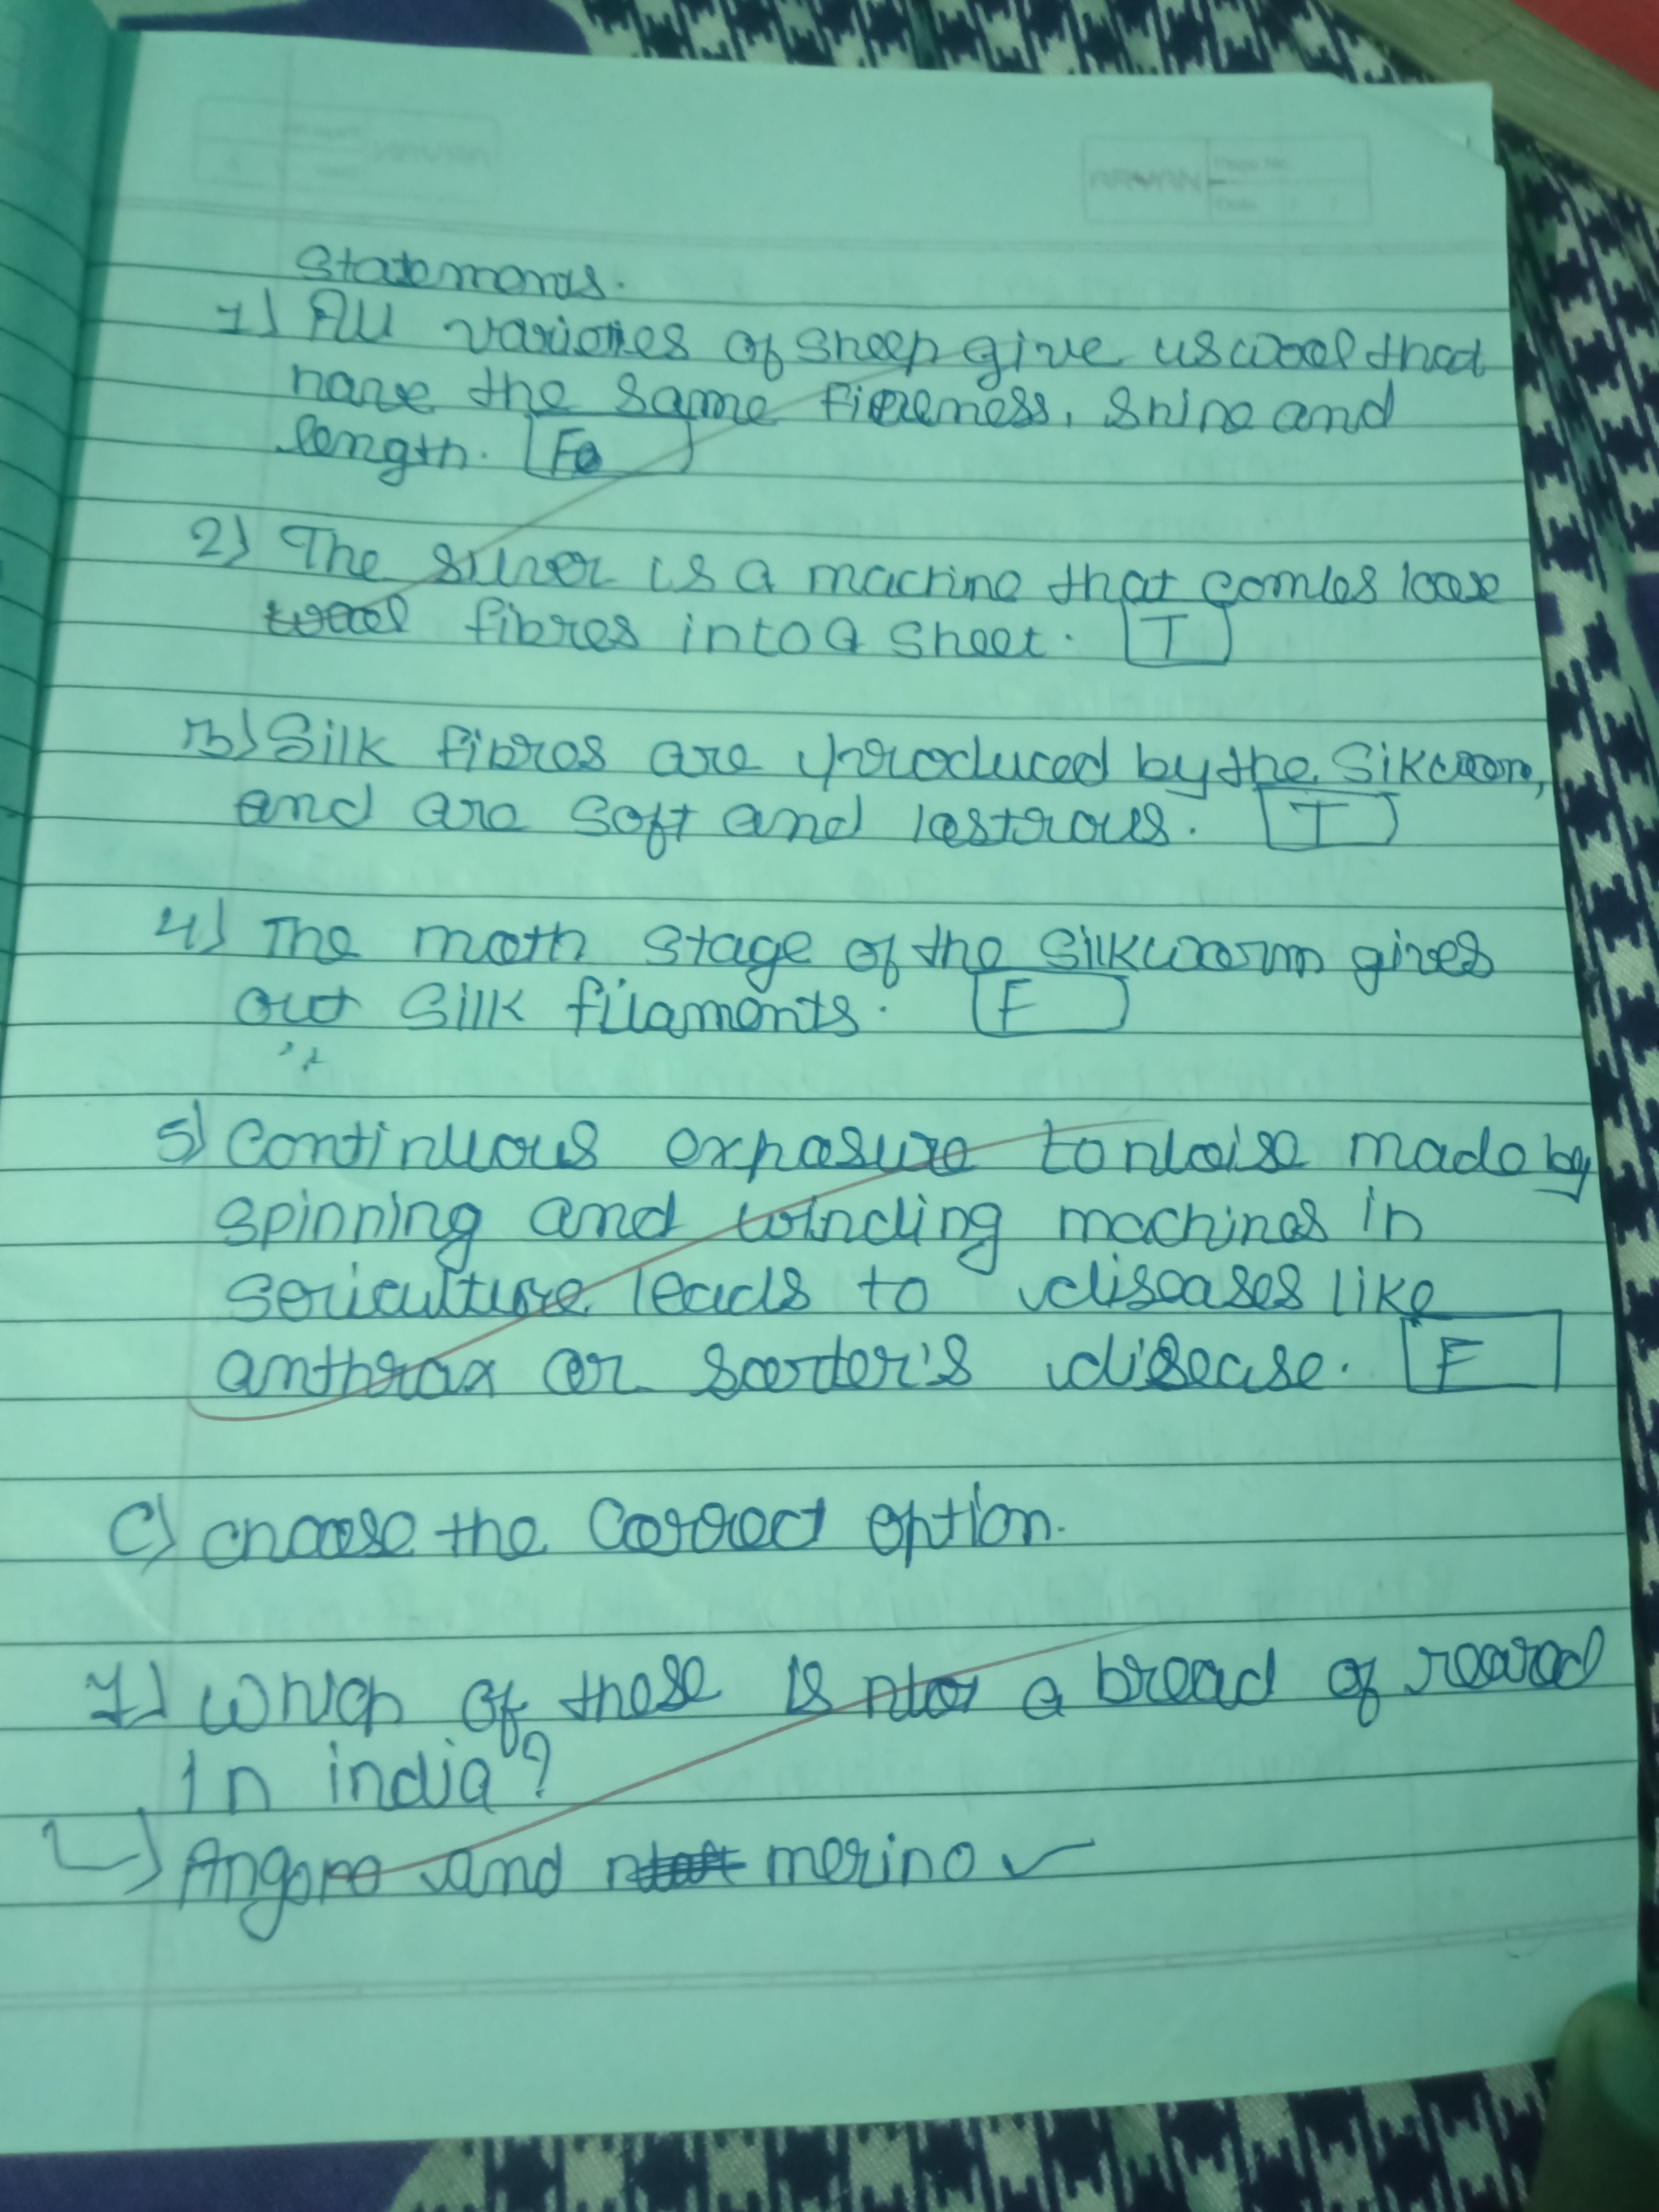 Statements.
1) All varieties of sheep give us wool that
have the same fineness, shine and
length. F
2) The sliver is a machine that combs loose
fibres into a sheet. T
3) Silk fibres are produced by the Sikworm,
and are soft and lastrous. T
4) The moth stage of the silkworm gives
out silk filaments. F
5) Continuous exposure to noise made by
spinning and winding machines in
sericulture leads to diseases like
anthrax or sorter's disease. F
C) Choose the Correct option.
1) Which of these is not a bread of reared
in india?
Angora and merino